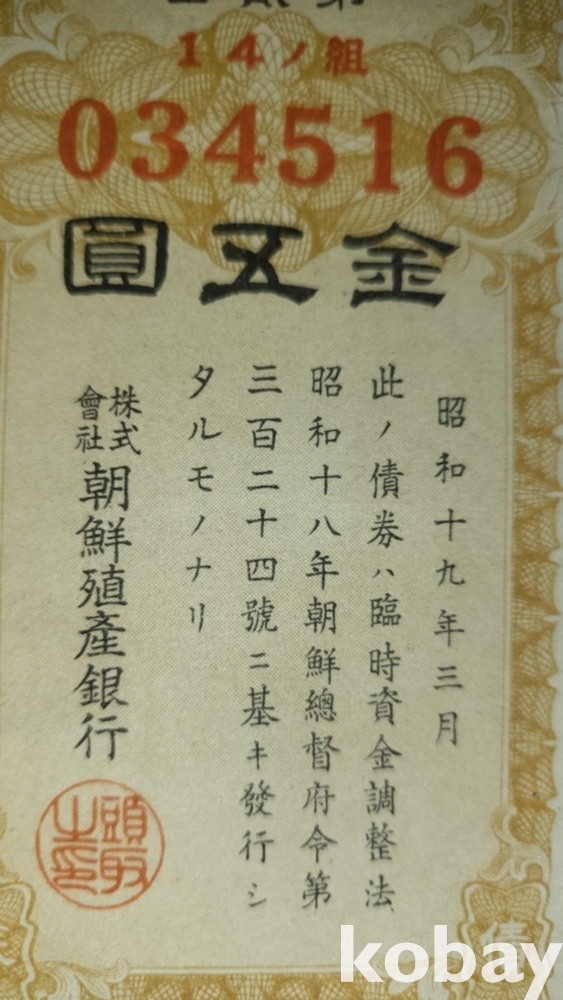 14ノ組
034516
金五圓
昭和十九年三月
此ノ債券ハ臨時資金調整法
昭和十八年朝鮮總督府令第
三百二十四號ニ基キ發行シ
タルモノナリ
株式會社朝鮮殖產銀行
頭取之印
kobay